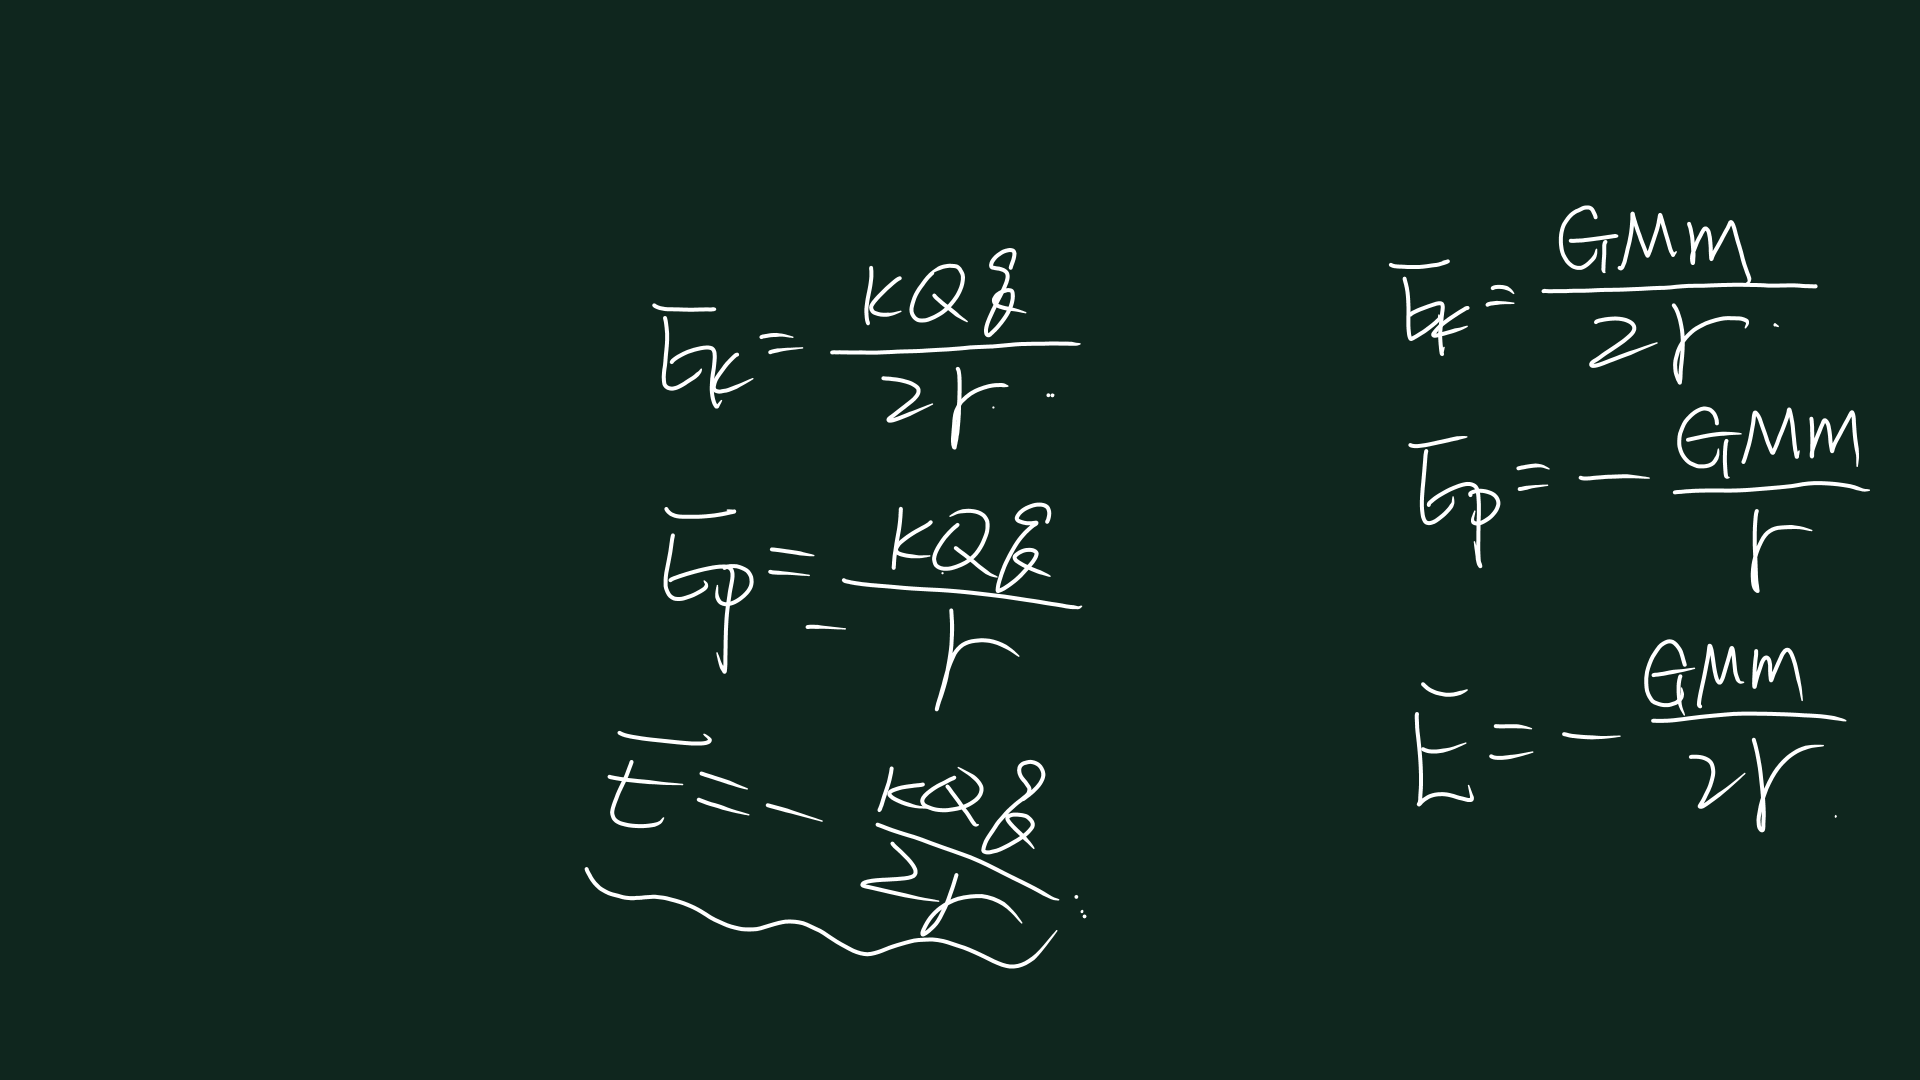 E_k = KQq / 2r
E_p = - KQq / r
E = - KQq / 2r
E_k = GMm / 2r
E_p = - GMm / r
E = - GMm / 2r